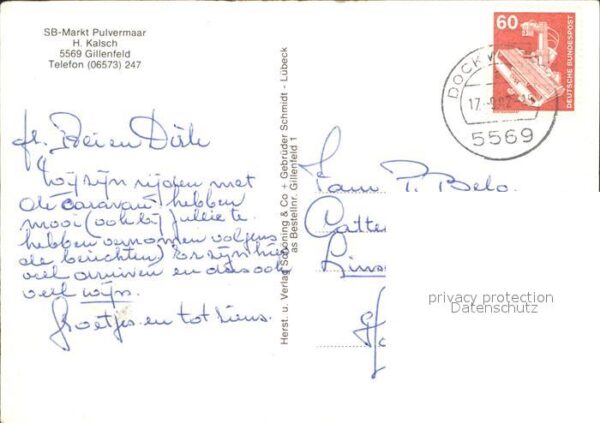 SB-Markt Pulvermaar
H. Kalsch
5569 Gillenfeld
Telefon (06573) 247
60
DEUTSCHE BUNDESPOST
DOCKW
17.-9.82-16
5569
Herst. u. Verlag Schöning & Co + Gebrüder Schmidt - Lübeck
as Bestellnr. Gillenfeld 1
en Dirk
Wij zijn rijden met
de caravan hebben
mooi (ook bij jullie te
hebben vernomen volgens
de berichten) Er zijn hier
veel druiven en dus ook
veel wijn.
Groetjes en tot ziens.
Fam P. Belo.
Gatte
Linse
privacy protection
Datenschutz